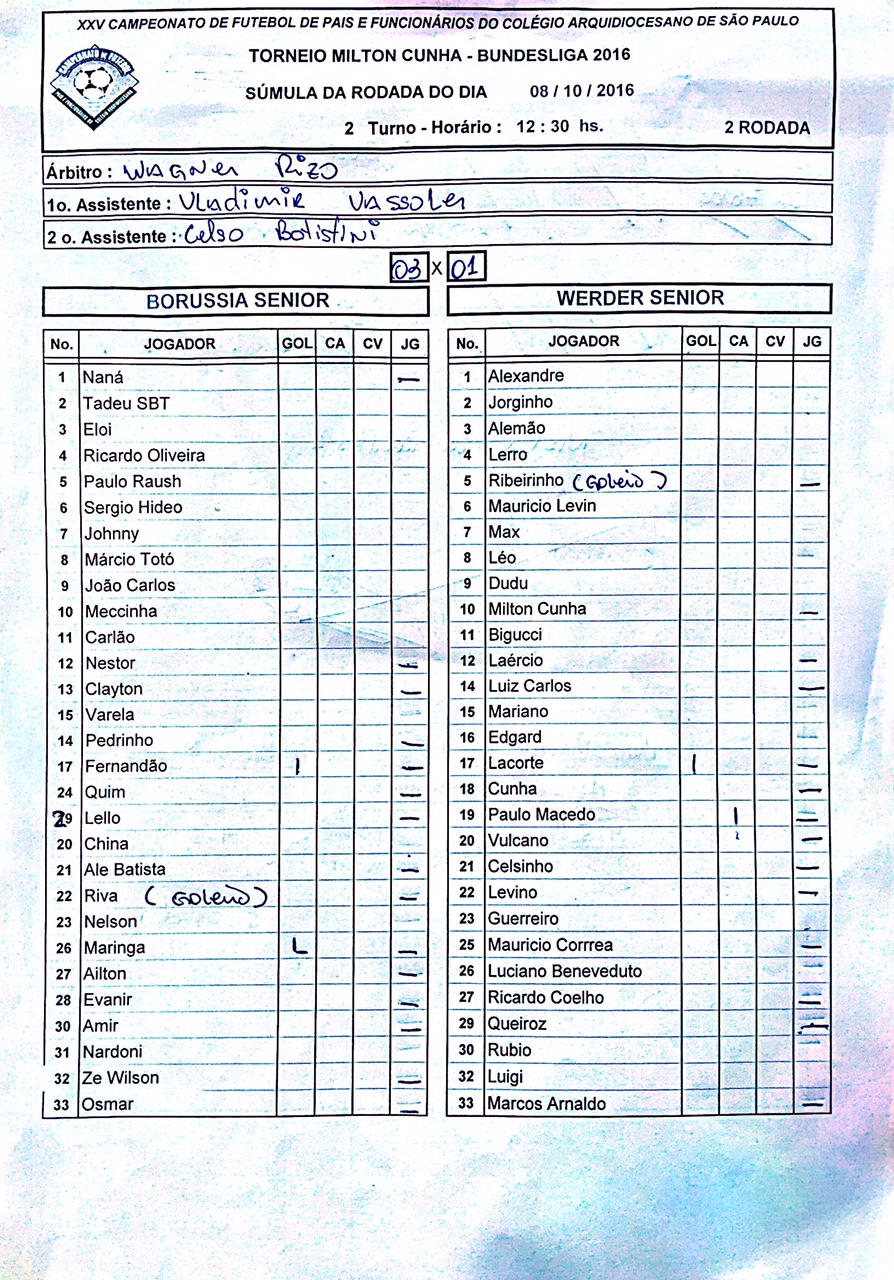 XXV CAMPEONATO DE FUTEBOL DE PAIS E FUNCIONÁRIOS DO COLÉGIO ARQUIDIOCESANO DE SÃO PAULO
TORNEIO MILTON CUNHA - BUNDESLIGA 2016
SÚMULA DA RODADA DO DIA 08 / 10 / 2016
2 Turno - Horário : 12 : 30 hs. 2 RODADA
Árbitro : WAGNER RIZO
1o. Assistente : VLADIMIR VASSOLER
2 o. Assistente : CELSO BATISTINI
03 X 01
BORUSSIA SENIOR
No. JOGADOR GOL CA CV JG
1 Naná —
2 Tadeu SBT
3 Eloi
4 Ricardo Oliveira
5 Paulo Raush
6 Sergio Hideo
7 Johnny
8 Márcio Totó
9 João Carlos
10 Meccinha
11 Carlão
12 Nestor —
13 Clayton —
15 Varela
14 Pedrinho —
17 Fernandão | —
24 Quim —
29 Lello —
20 China
21 Ale Batista —
22 Riva (GOLEIRO) —
23 Nelson
26 Maringa L —
27 Ailton —
28 Evanir —
30 Amir —
31 Nardoni
32 Ze Wilson —
33 Osmar —
WERDER SENIOR
No. JOGADOR GOL CA CV JG
1 Alexandre
2 Jorginho
3 Alemão
4 Lerro
5 Ribeirinho (GOLEIRO) —
6 Mauricio Levin
7 Max
8 Léo
9 Dudu
10 Milton Cunha —
11 Bigucci
12 Laércio —
14 Luiz Carlos —
15 Mariano
16 Edgard
17 Lacorte | —
18 Cunha —
19 Paulo Macedo | —
20 Vulcano —
21 Celsinho —
22 Levino —
23 Guerreiro
25 Mauricio Corrrea —
26 Luciano Beneveduto
27 Ricardo Coelho —
29 Queiroz —
30 Rubio
32 Luigi
33 Marcos Arnaldo —